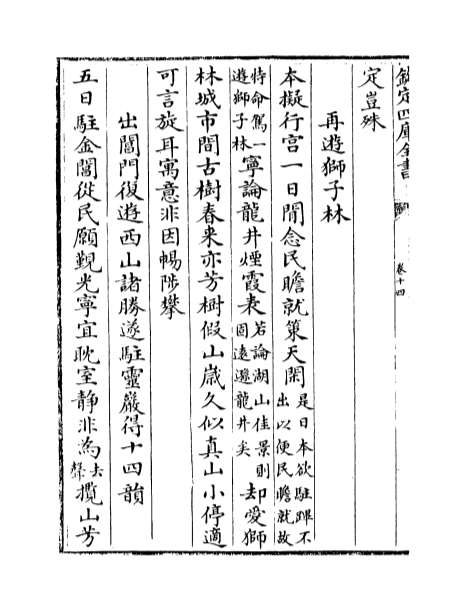 欽定四庫全書
卷十四
定豈殊
再遊獅子林
本擬行宮一日閒念民瞻就策天閑是日本欲駐蹕不出以便民瞻就故
特命駕一遊獅子林寧論龍井煙霞表若論湖山佳景則固遠遜龍井矣却愛獅
林城市間古樹春來亦芳樹假山歲久似真山小停適
可言旋耳寓意非因暢陟攀
出閶門復遊西山諸勝遂駐靈巖得十四韻
五日駐金閶從民願覲光寧宜耽室靜非為去聲攬山芳